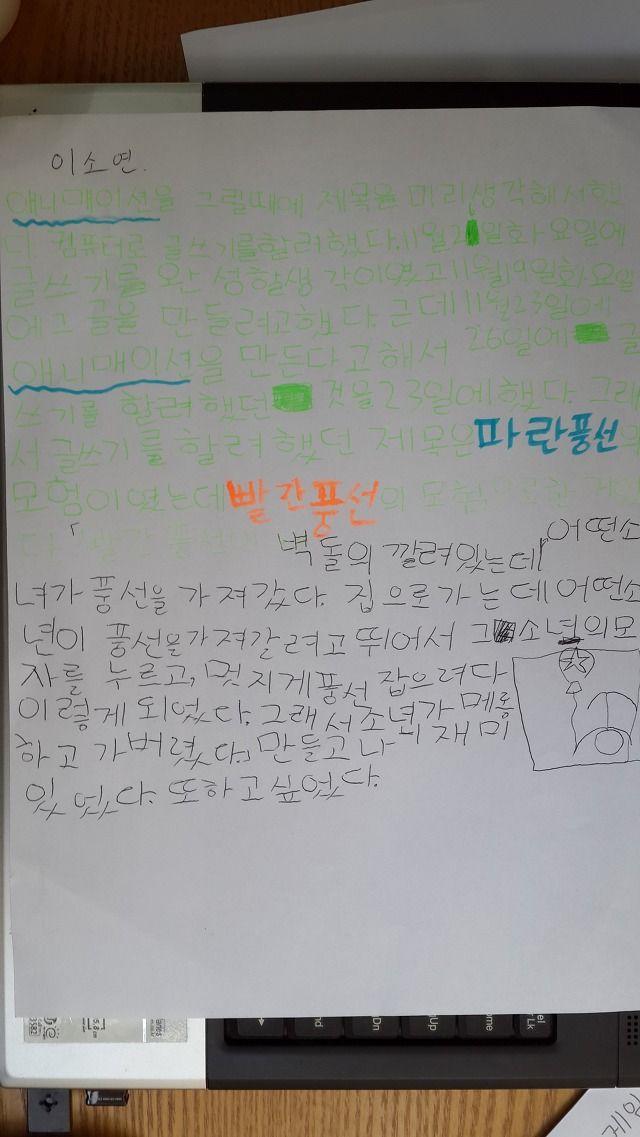 이소연.
애니매이션을 그릴때에 제목을 미리생각해서했
다. 컴퓨터로 글쓰기를할려했다.11월2일화요일에
글쓰기를 완성할생각이였고11월19일화요일
에그 글을 만들려고했다. 근데11월23일에
애니매이션을 만든다고해서 26일에 글
쓰기를 할려했던 것을23일에했다. 그래
서글쓰기를할려했던 제목은파란풍선의
모험이였는데빨간풍선의 모험
벽돌의 깔려있는데 어떤소
녀가 풍선을 가져갔다. 집으로가는데어떤소
년이 풍선을가져갈려고 뛰어서 그소년의모
자를 누르고, 멋지게풍선 잡으려다
이렇게되었다. 그래서소년가 메롱
하고 가버렸다. 만들고나니재미
있었다. 또하고싶었다.
End
PgDn
PgUp
Home